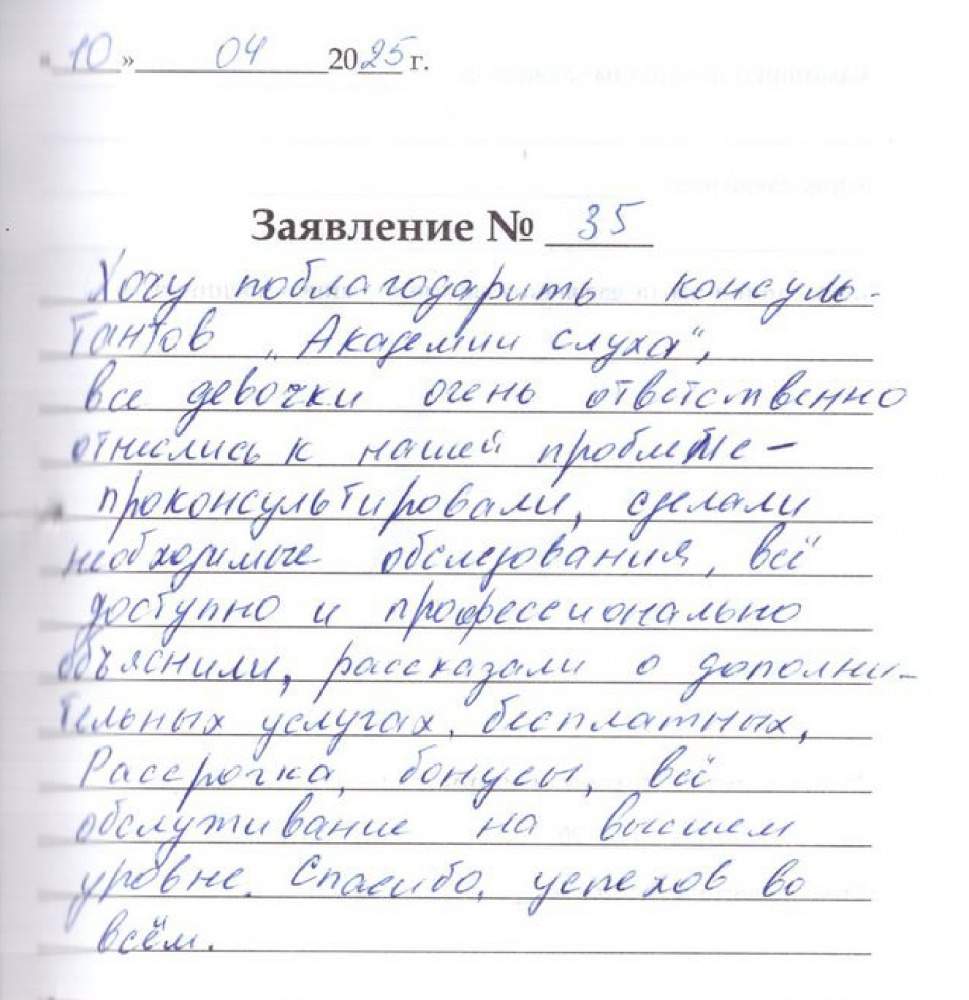 «10» 04 2025 г.
Заявление № 35
Хочу поблагодарить консуль-
тантов „Академии слуха",
все девочки очень ответственно
отнеслись к нашей проблеме -
проконсультировали, сделали
необходимые обследования, всё
доступно и профессионально
объяснили, рассказали о дополни-
тельных услугах, бесплатных,
Рассрочка, бонусы, всё
обслуживание на высшем
уровне. Спасибо, успехов во
всём.